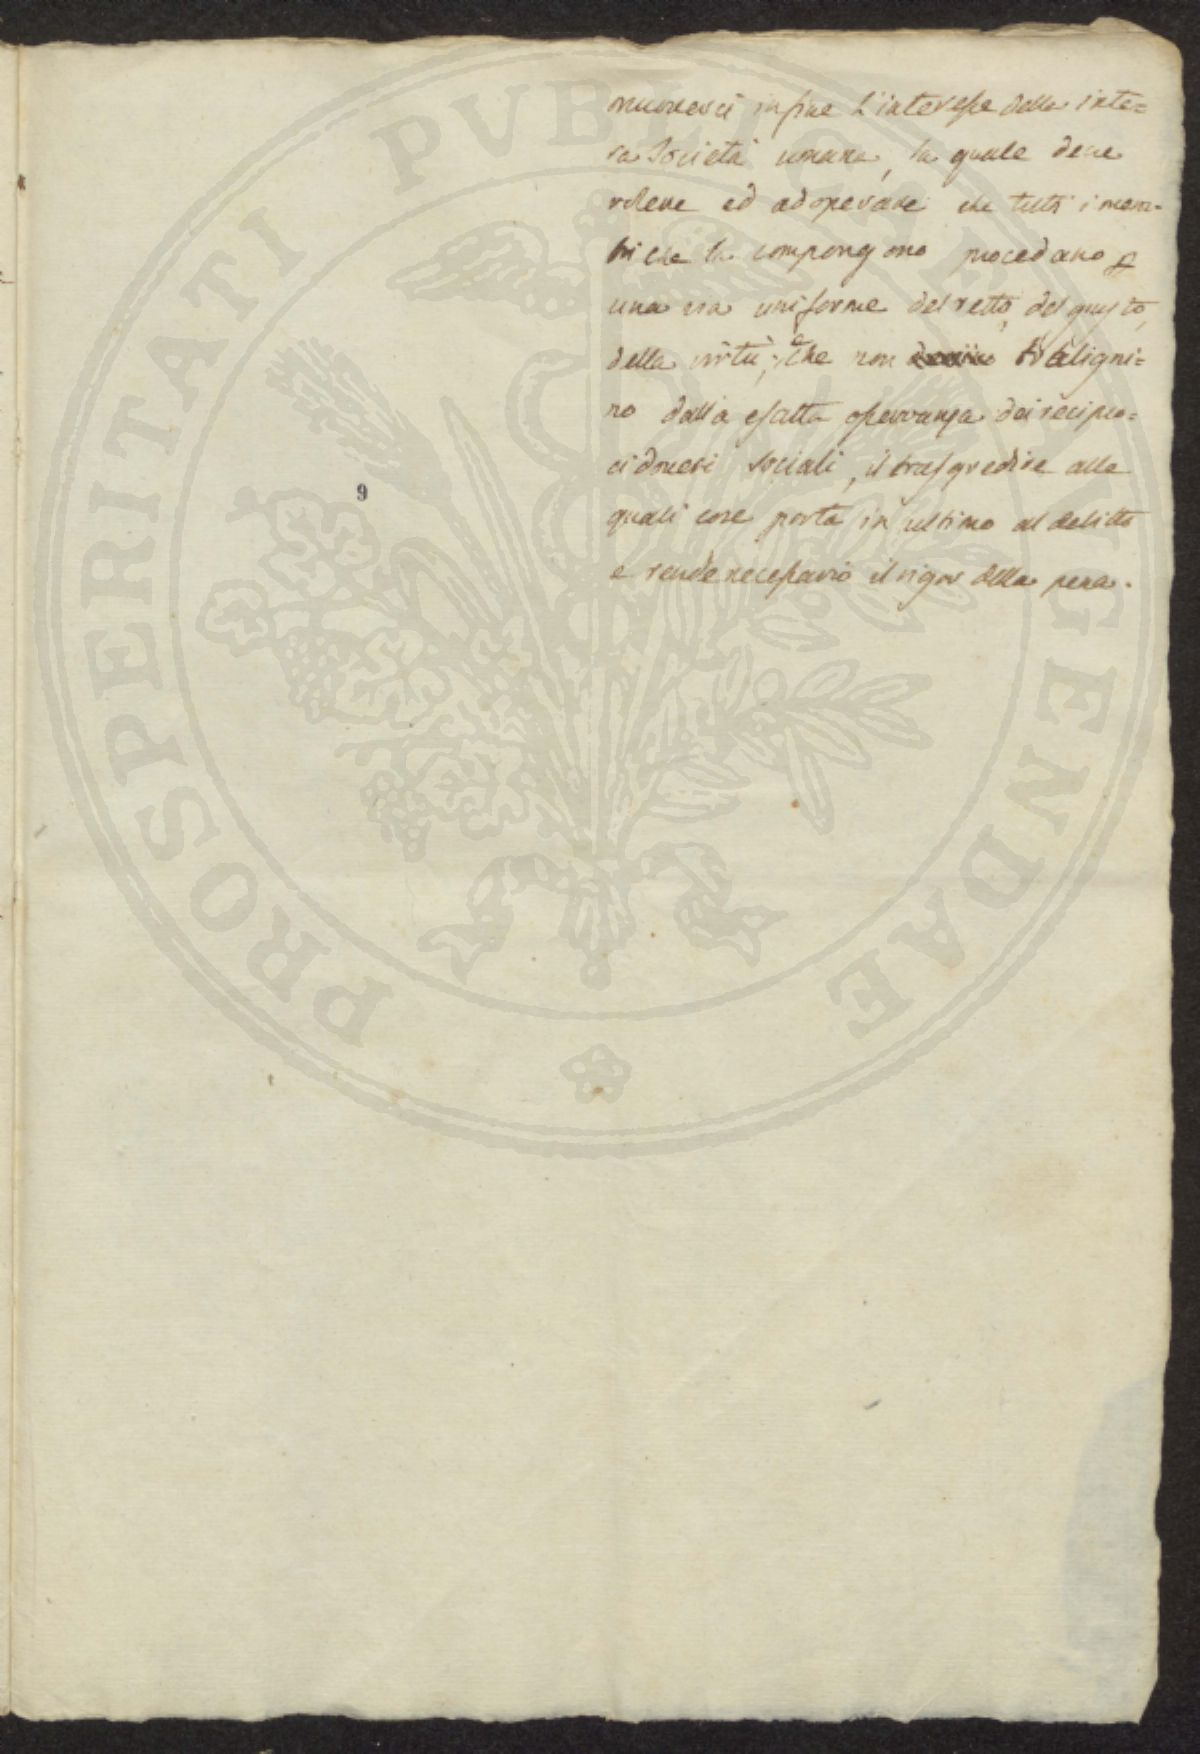 muoverci infine l'interesse della inte=
ra Società umana, la quale deve
volere ed adoperare che tutti i mem-
bri che la compongono procedano p
una via uniforme del retto, del giusto,
della virtù; e che non traligni=
no dalla esatta osservanza dei recipro=
ci doveri sociali, il trasgredire alle
quali cose porta in ultimo al delitto
e rende necessario il rigor della pena.
9
PROSPERITATI PVBLICAE AVGENDAE